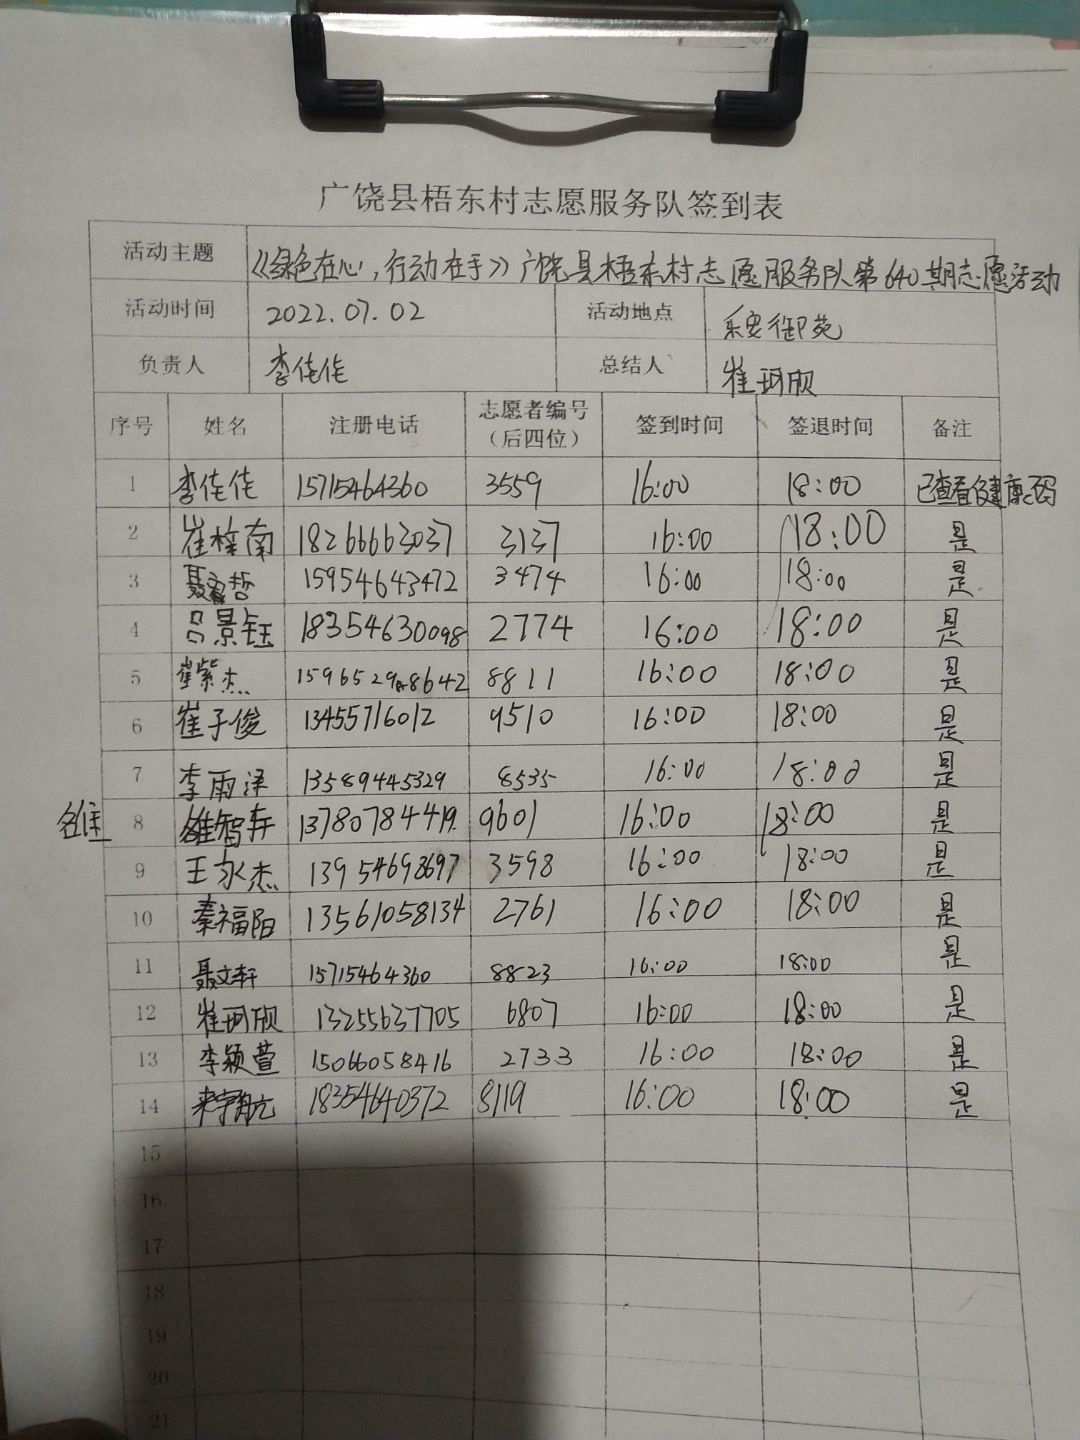 广饶县梧东村志愿服务队签到表
活动主题 《绿色在心,行动在手》广饶县梧东村志愿服务队第640期志愿活动
活动时间 2022.07.02 活动地点 乐安御苑
负责人 李佳佳 总结人 崔珂欣
序号 姓名 注册电话 志愿者编号（后四位） 签到时间 签退时间 备注
1 李佳佳 15715464360 3559 16:00 18:00 已查看健康码
2 崔梓南 18266663037 3137 16:00 18:00 是
3 聂家哲 15954643472 3474 16:00 18:00 是
4 吕景钰 18354630098 2774 16:00 18:00 是
5 崔紫杰 15965298642 8811 16:00 18:00 是
6 崔子俊 13455716012 9510 16:00 18:00 是
7 李雨泽 13589445329 8535 16:00 18:00 是
8 智轩 13780784419 9601 16:00 18:00 是
9 王永杰 13954693697 3598 16:00 18:00 是
10 秦福阳 13561058134 2761 16:00 18:00 是
11 聂文轩 15715464360 8823 16:00 18:00 是
12 崔珂欣 13255637705 6807 16:00 18:00 是
13 李颖萱 15066058416 2733 16:00 18:00 是
14 宇航 18354640372 8119 16:00 18:00 是
15
16
17
18
19
20
21